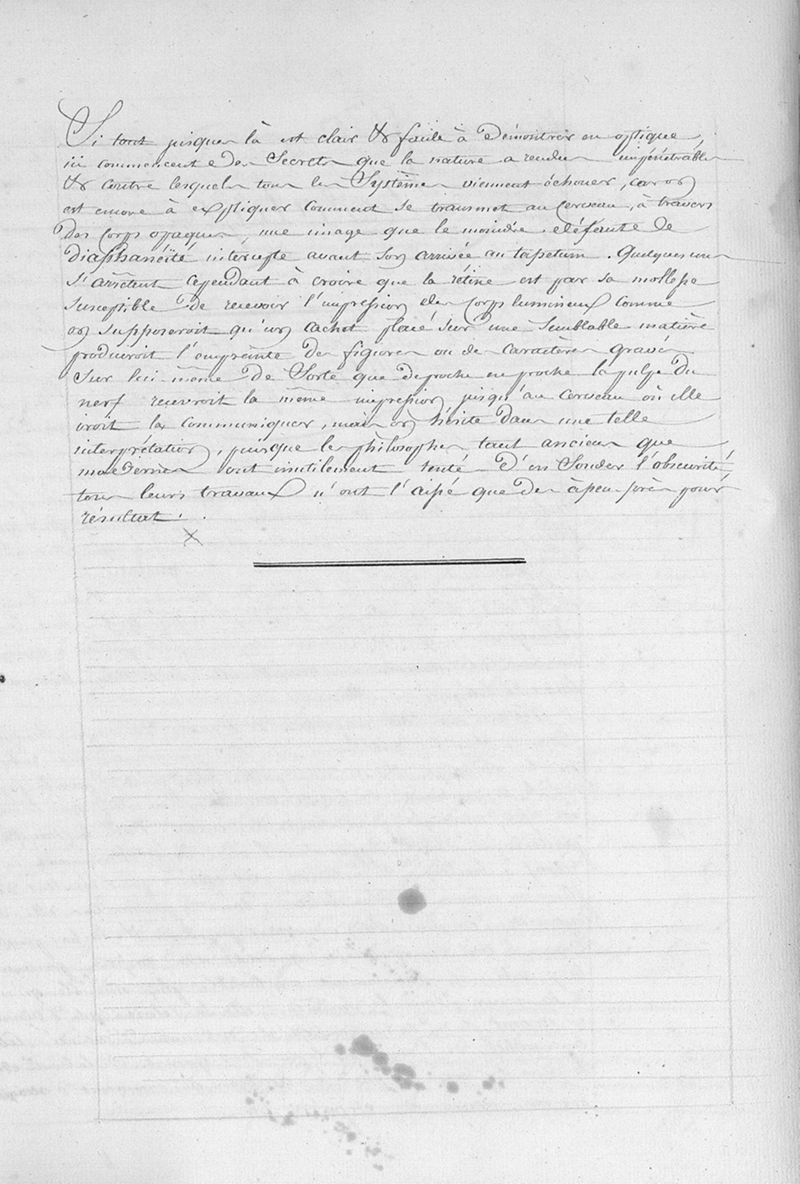 Si tout jusques là est clair & facile à démontrer en optique,
ici commencent des Secrets que la nature a rendus impénétrables
& contre lesquels tous les Systèmes viennent échouer, car on
est encore à expliquer comment se transmet au Cerveau, à travers
des Corps opaques, une image que le moindre défécuté de
diaphanéité, intercepte avant son arrivée au tapetum. Quelques uns
s'arrêtent cependant à croire que la rétine est par sa mollesse
susceptible de recevoir l'impression des Corps lumineux comme
on supposeroit qu'un cachet placé sur une semblable matière
produiroit l'empreinte des figures ou des caractères gravés
sur lui même de Sorte que de proche en proche la pulpe du
nerf recevroit la même impression jusqu'au cerveau où elle
iroit la communiquer, mais on hésite dans une telle
interprétation, puisque les philosophes tant anciens que
modernes ont inutilement tenté d'en Sonder l'obscurité,
tous leurs travaux n'ont l'aissé que des àpeu près pour
résultat.
X